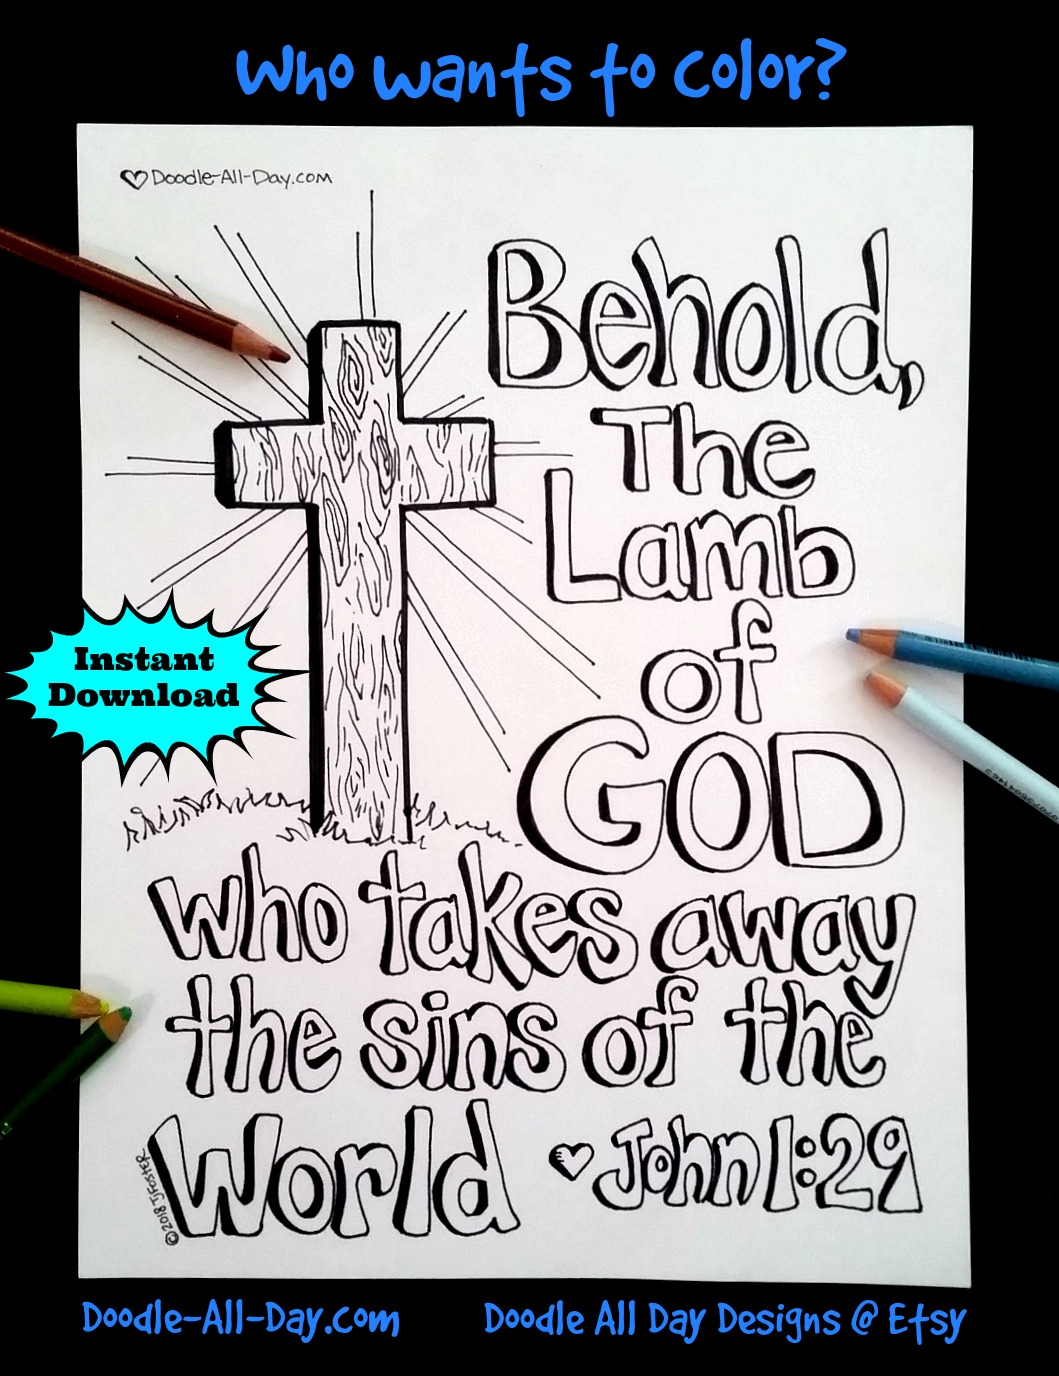 Who wants to color?
Doodle-All-Day.com
Behold,
The
Lamb
of
GOD
who takes away
the sins of the
World
John 1:29
©2018 TJFOSTER
Instant
Download
Doodle-All-Day.com
Doodle All Day Designs @ Etsy